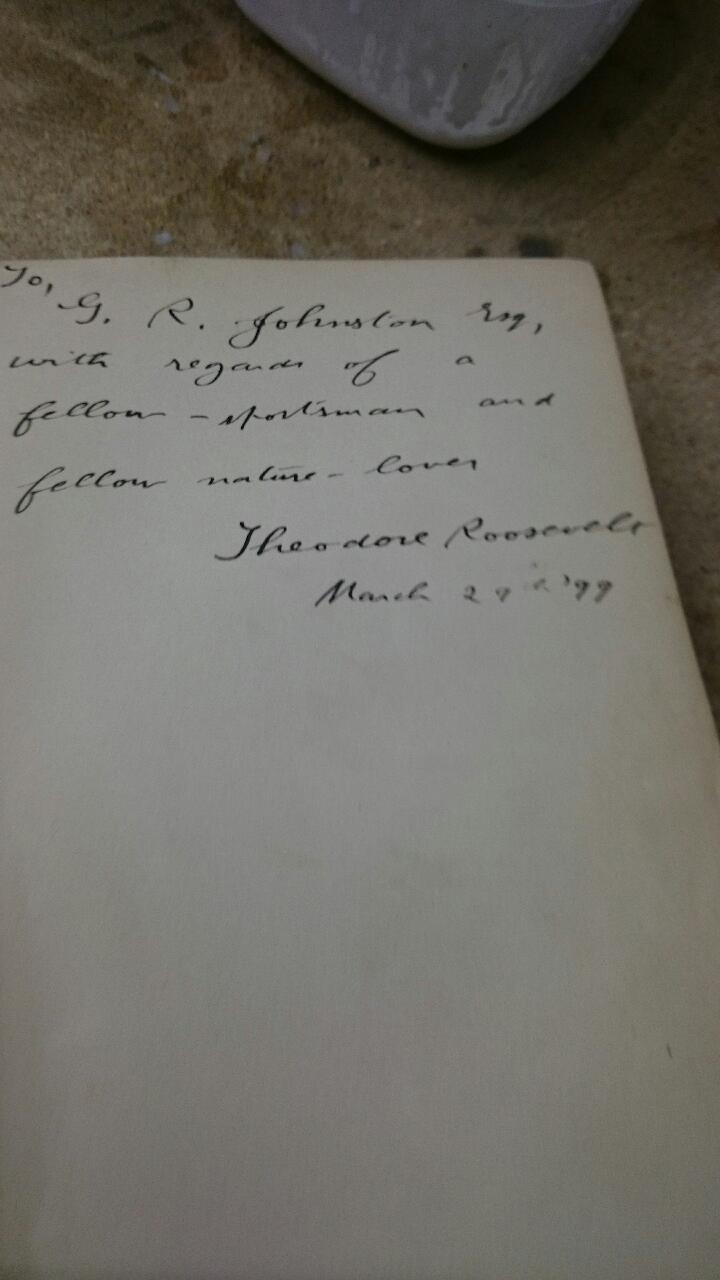 To,
G. R. Johnston Esq,
with regards of a
fellow-sportsman and
fellow nature-lover
Theodore Roosevelt
March 29th '99